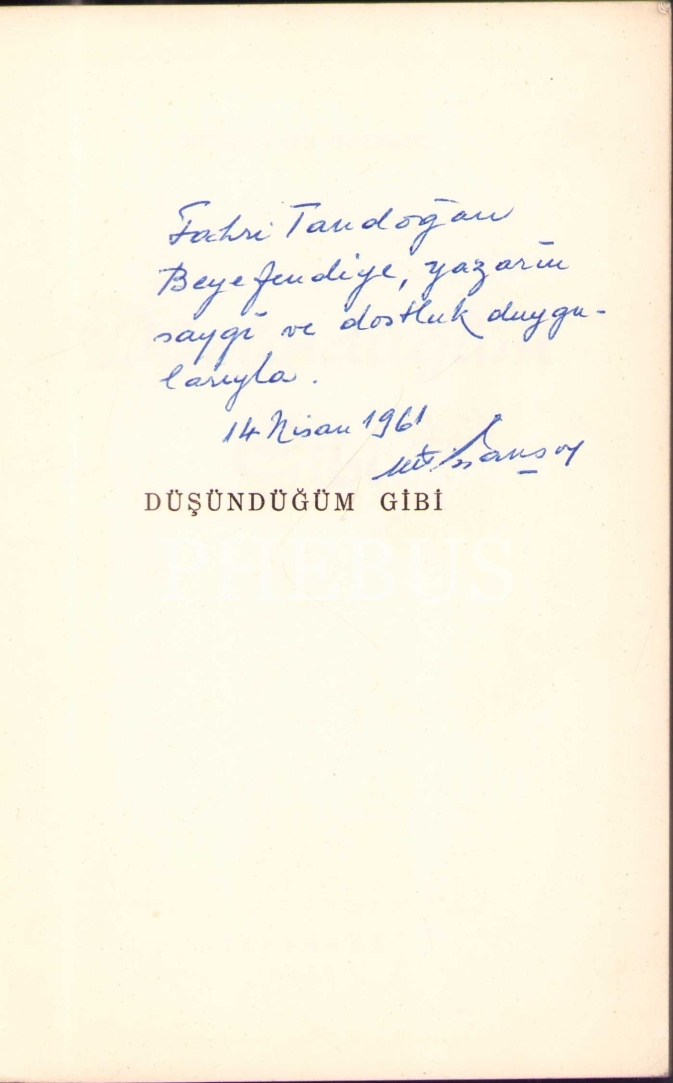 Fahri Tandoğan
Beyefendiye, yazarın
saygı ve dostluk duygu-
larıyla.
14 Nisan 1961
DÜŞÜNDÜĞÜM GİBİ
PHEBUS